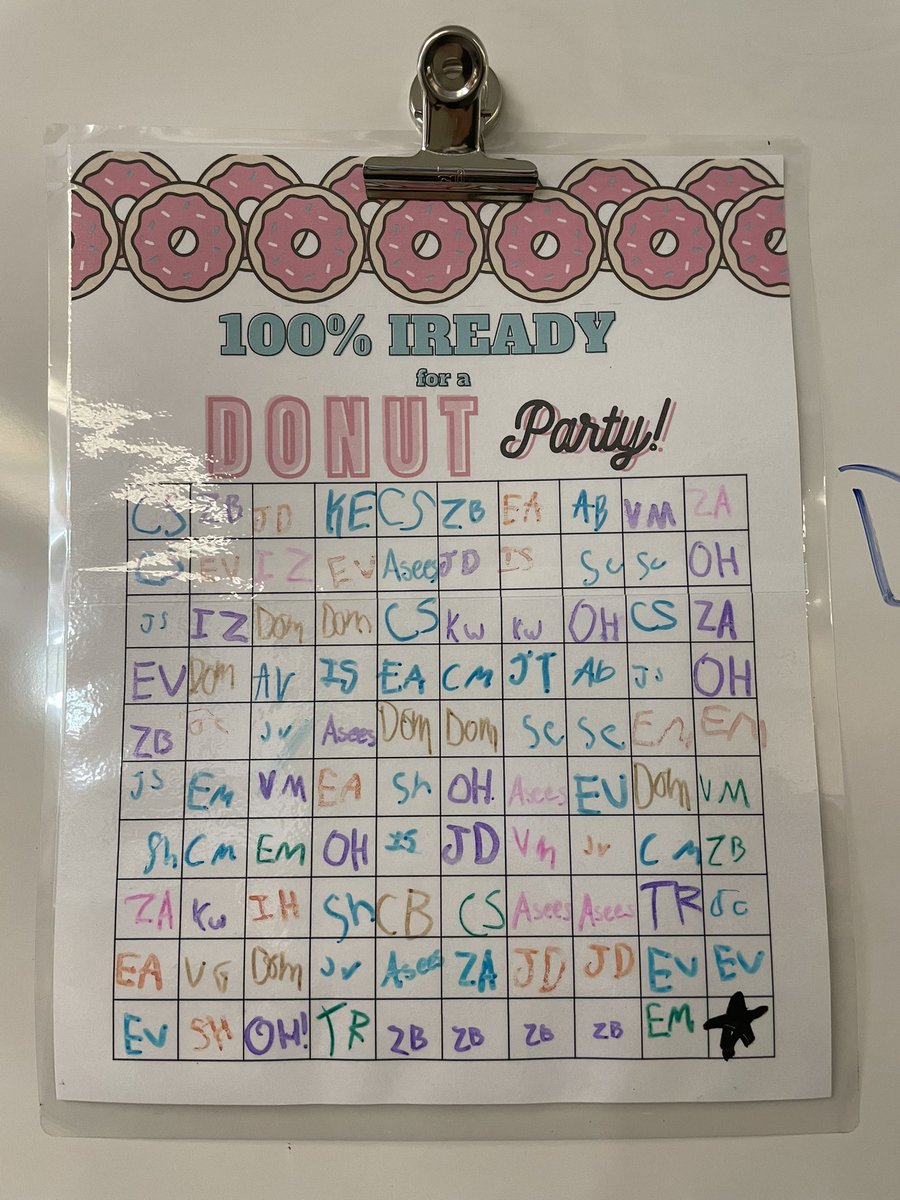 100% IREADY
for a
DONUT Party!
CS ZB JD KE CS ZB EA AB VM ZA
EV IZ EV Asees JD IS Sc Sc OH
JS IZ Dom Dom CS Kw Kw OH CS ZA
EV Dom AV IS EA CM JT Ab Js OH
ZB Jv Asees Dom Dom Sc Sc Em Em
JS Em VM EA Sh OH. Asees EV Dom VM
Sh Cm EM OH IS JD Vm Jv Cm ZB
ZA Kw IH Sh CB CS Asees Asees TR Jc
EA VG Dom Jv Asees ZA JD JD EV EV
EV SH OH! TR ZB ZB ZB ZB EM